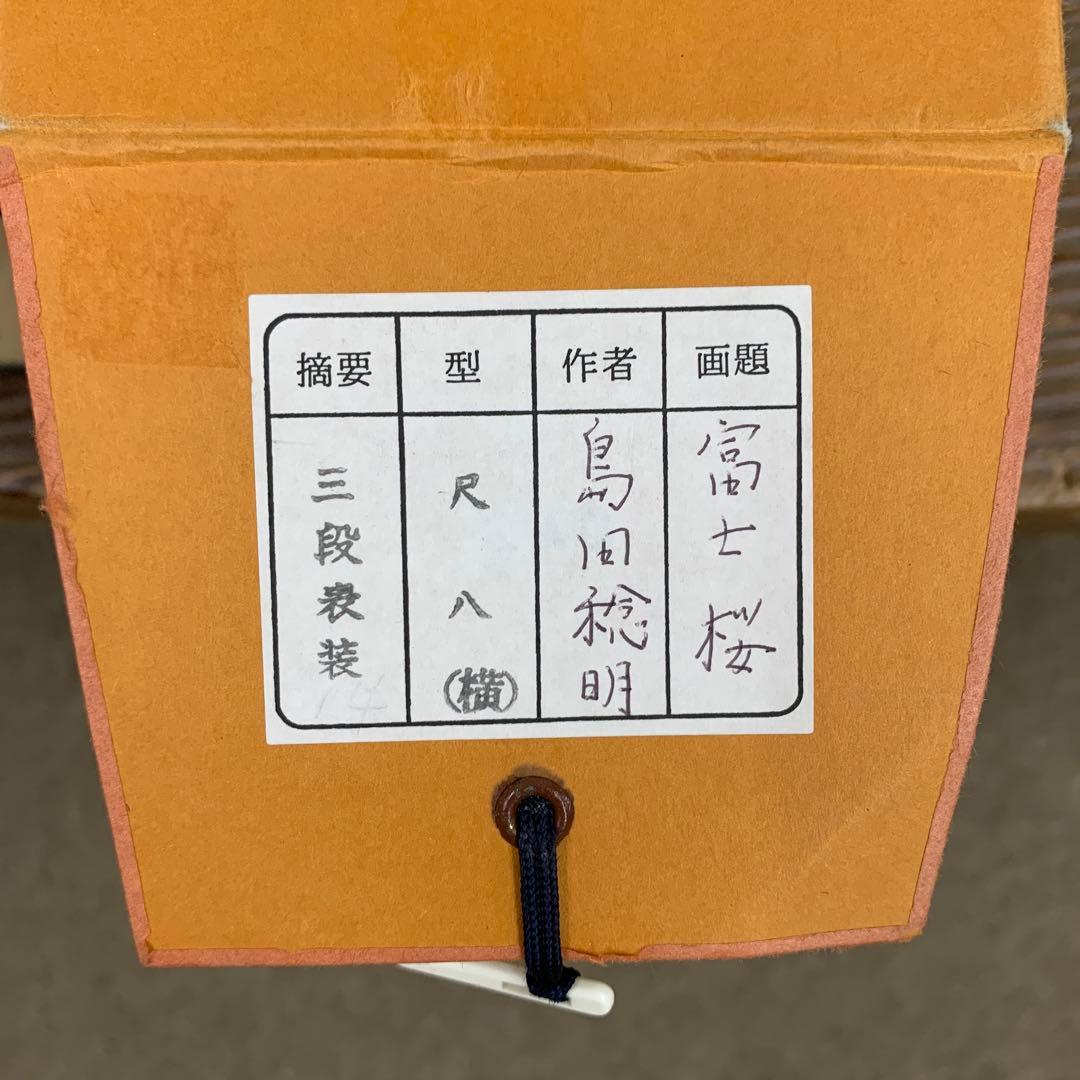 画題
富士桜
作者
島田稔明
型
尺八(横)
摘要
三段表装